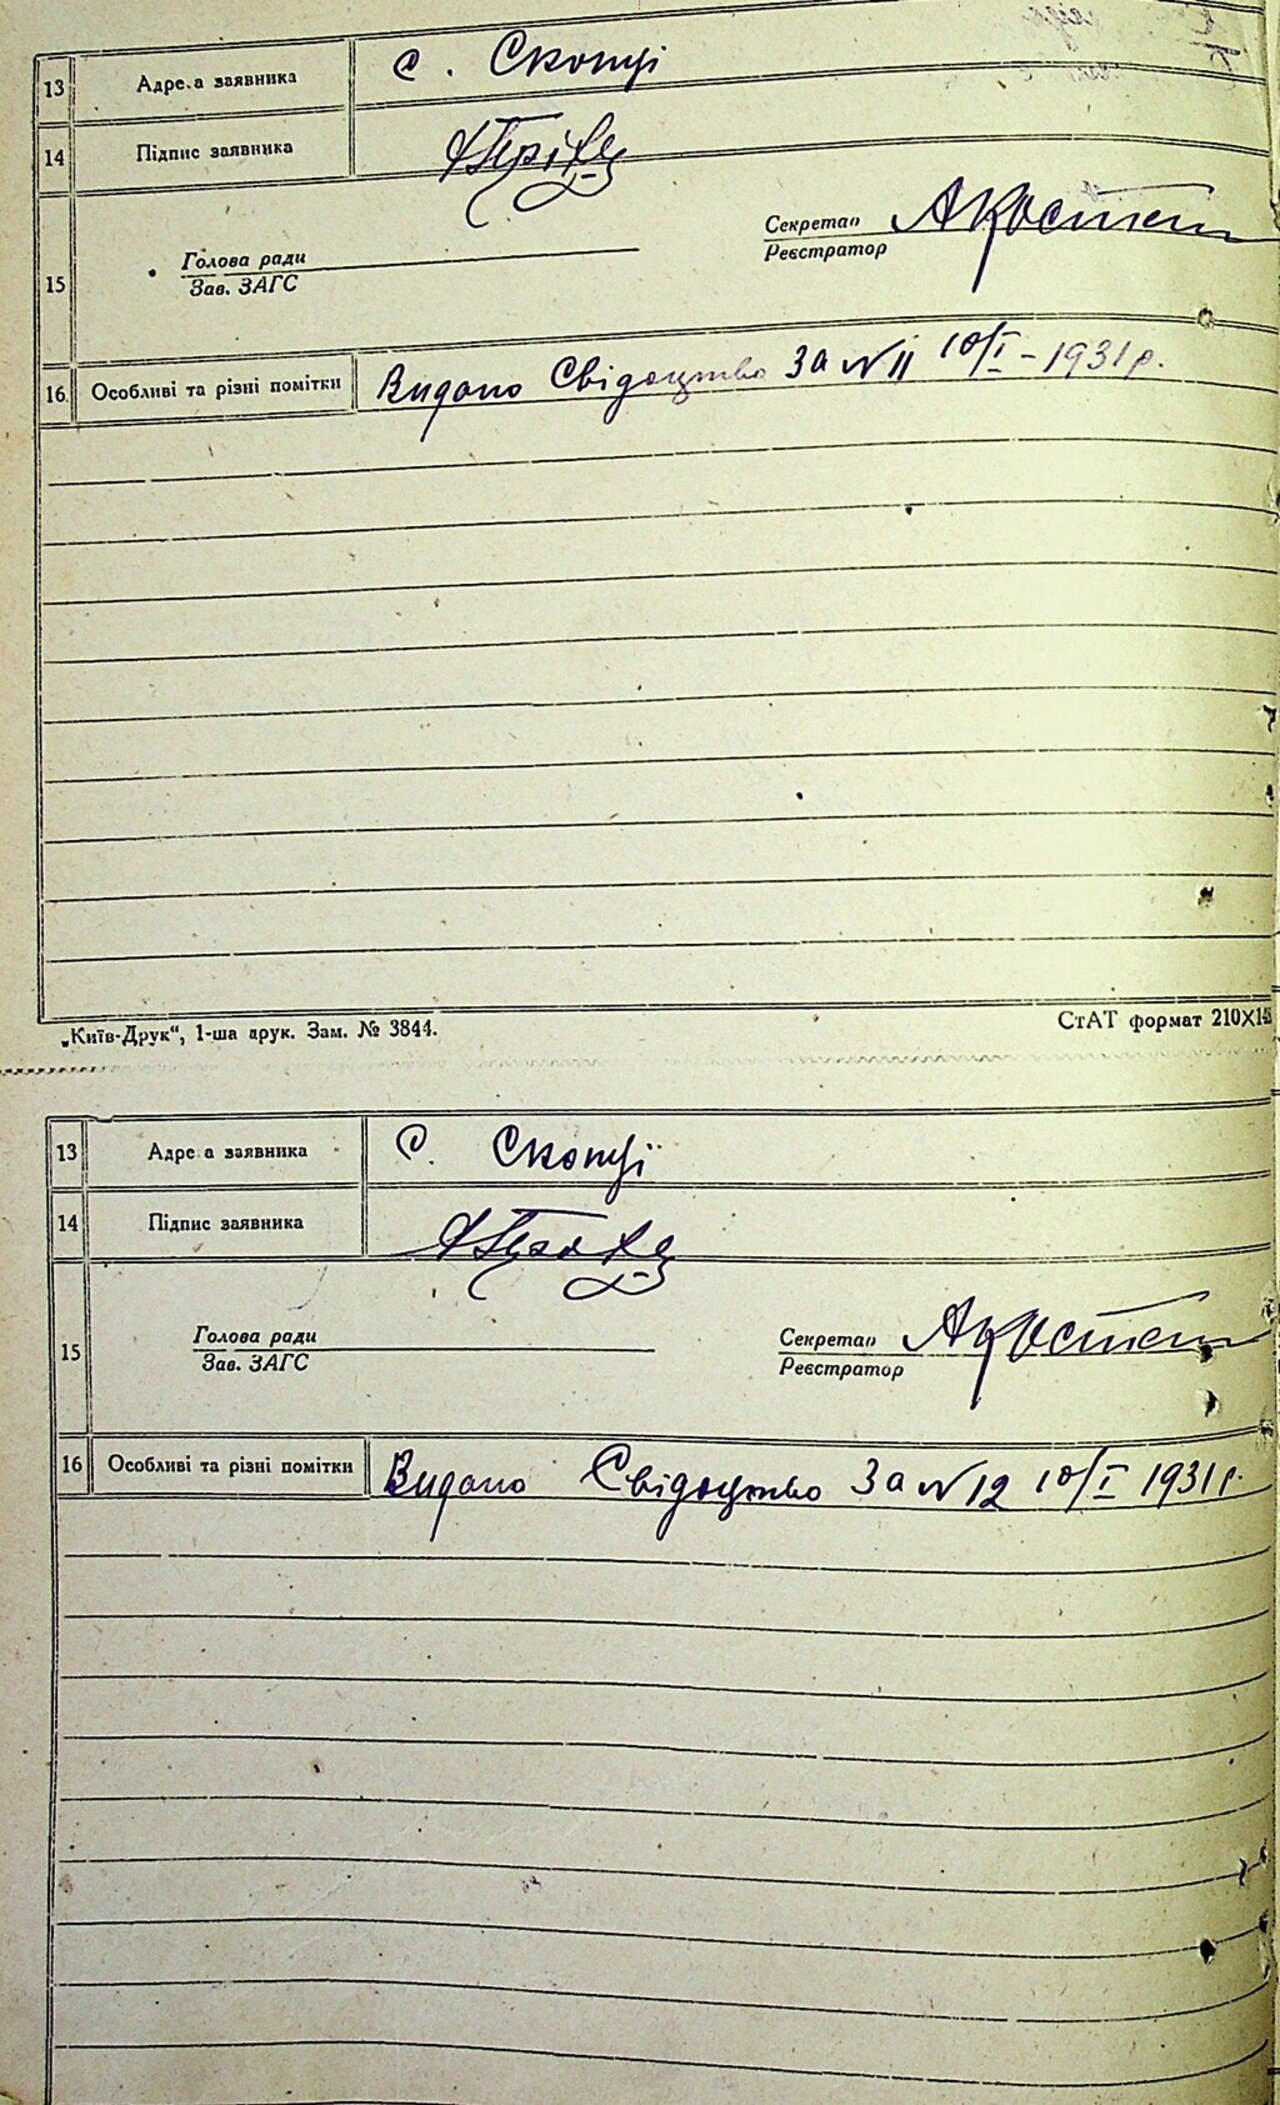 13 Адреса заявника с. Скопці
14 Підпис заявника
15 Голова ради Секретар
Зав. ЗАГС Реєстратор
16. Особливі та різні помітки Видано Свідоцтво За № 11 10/I - 1931 р.
„Київ-Друк“, 1-ша друк. Зам. № 3844. СтАТ формат 210X148
13 Адреса заявника С. Скопці
14 Підпис заявника
15 Голова ради Секретар
Зав. ЗАГС Реєстратор
16 Особливі та різні помітки Видано Свідоцтво За № 12 10/I 1931 р.